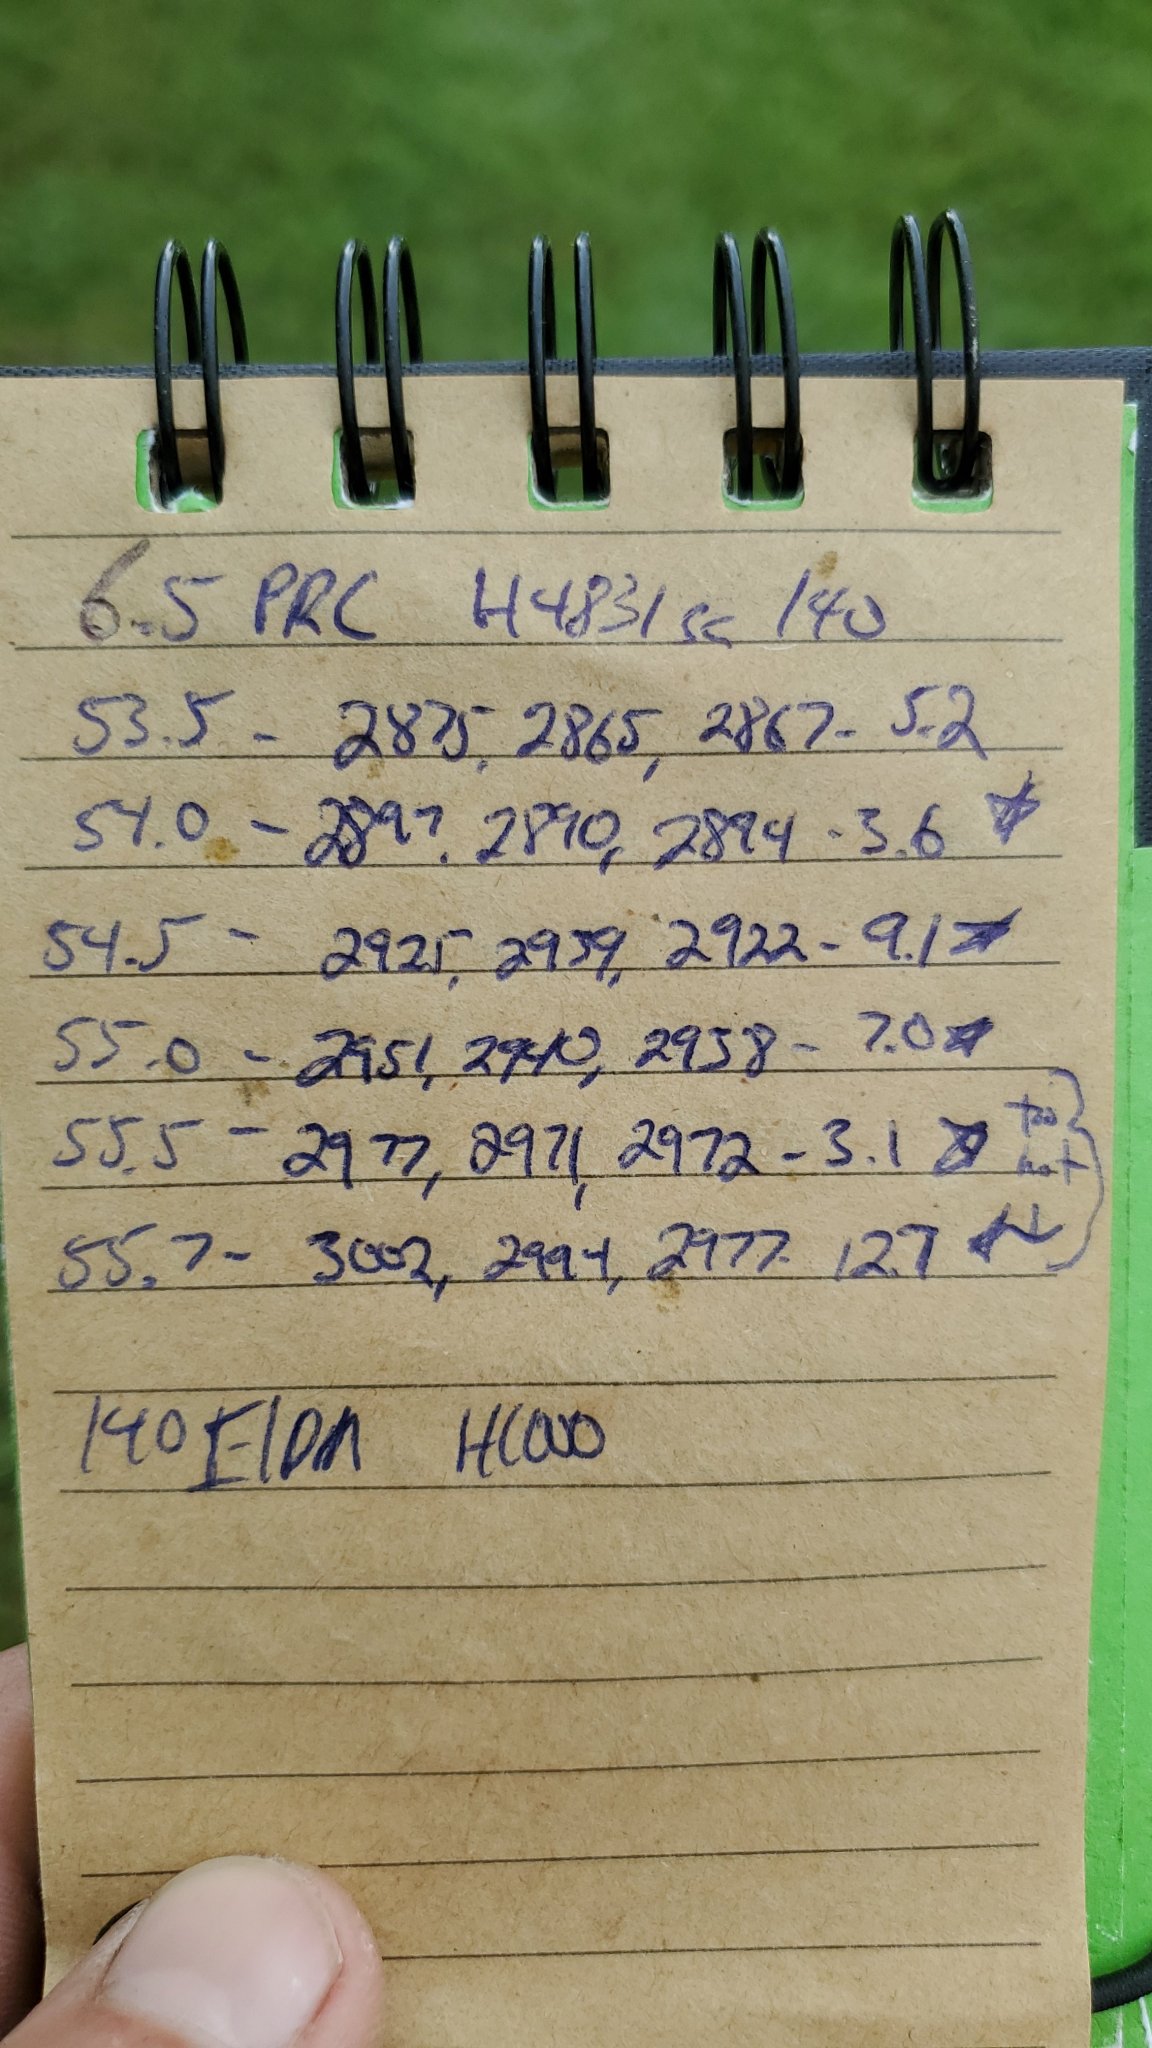 6.5 PRC H4831sc 140
53.5 - 2875, 2865, 2867 - 5.2
54.0 - 2897, 2890, 2894 - 3.6
54.5 - 2925, 2939, 2922 - 9.1
55.0 - 2951, 2940, 2958 - 7.0
55.5 - 2977, 2971, 2972 - 3.1 too hot
55.7 - 3002, 2994, 2977 12.7
140 H1000